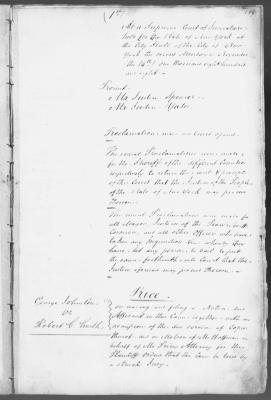 At a Supreme Court of Judicature
held for the State of New York at
the City Hall of the City of New
York the second Monday November
the 14th one thousand eight hundred
and eight
Present
Mr Justice Spencer
Mr Justice Yates
Proclamation made and Court opened
The usual Proclamations were made
for the Sheriffs of the different Counties
respectively to return the writs & precepts
of this Court that the Justices of the People
of the State of New York may proceed
thereon
The usual Proclamation was made for
all Mayors Justices of the Peace
Coroners and all other Officers who have
taken any Inquisition
the same forthwith into Court that the
Justices aforesaid may proceed thereon
George Johnston
vs
Robert C Smith
On reading and filing a Notice and
Affidavit in this Cause together with an
admission of the due service of Copies
thereof and on Motion of Mr Hoffman in
behalf of Mr Attorney for the
Plaintiff Ordered that this Cause be tried by
a Struck Jury